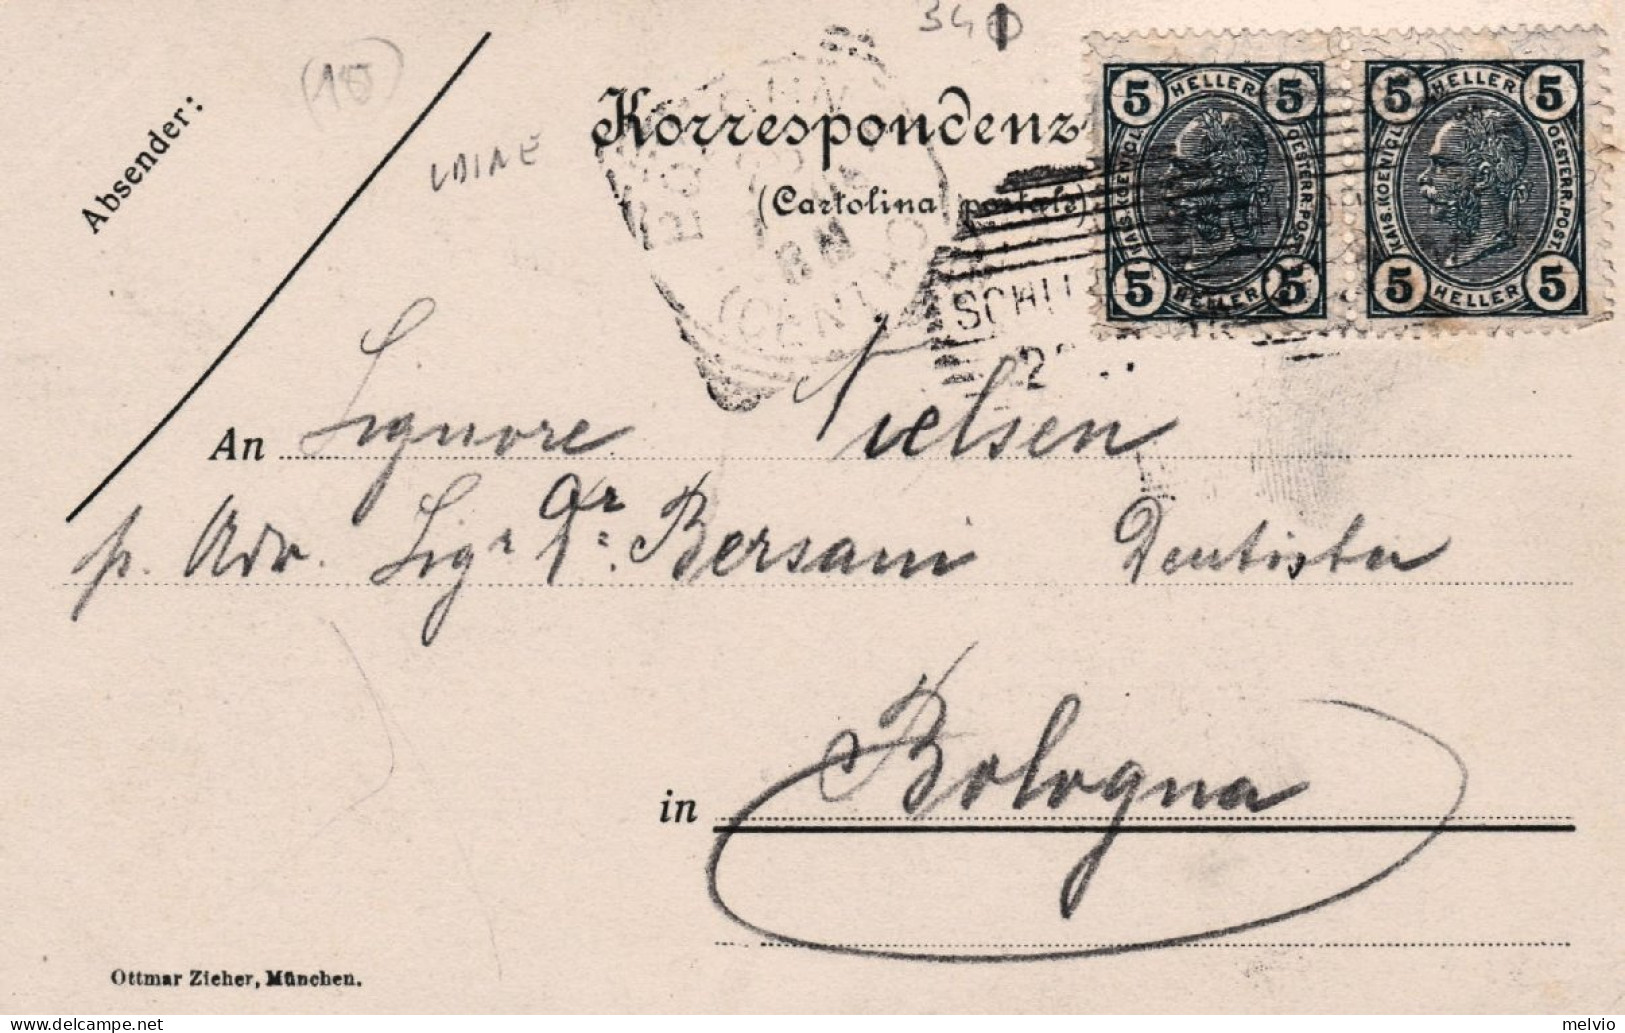 34
(15)
Absender:
Korrespondenz-
(Cartolina postale)
5 HELLER 5
KAIS. KOENIGL. OESTERR. POST.
5 HELLER 5
5 HELLER 5
KAIS. KOENIGL. OESTERR. POST.
5 HELLER 5
BOLOGNA
8 M
(CENTRO)
SCHL
2
An Signore Nielsen
p. Adr. Sigr Dr Bersani Dentista
in Bologna
Ottmar Zieher, München.
melvio